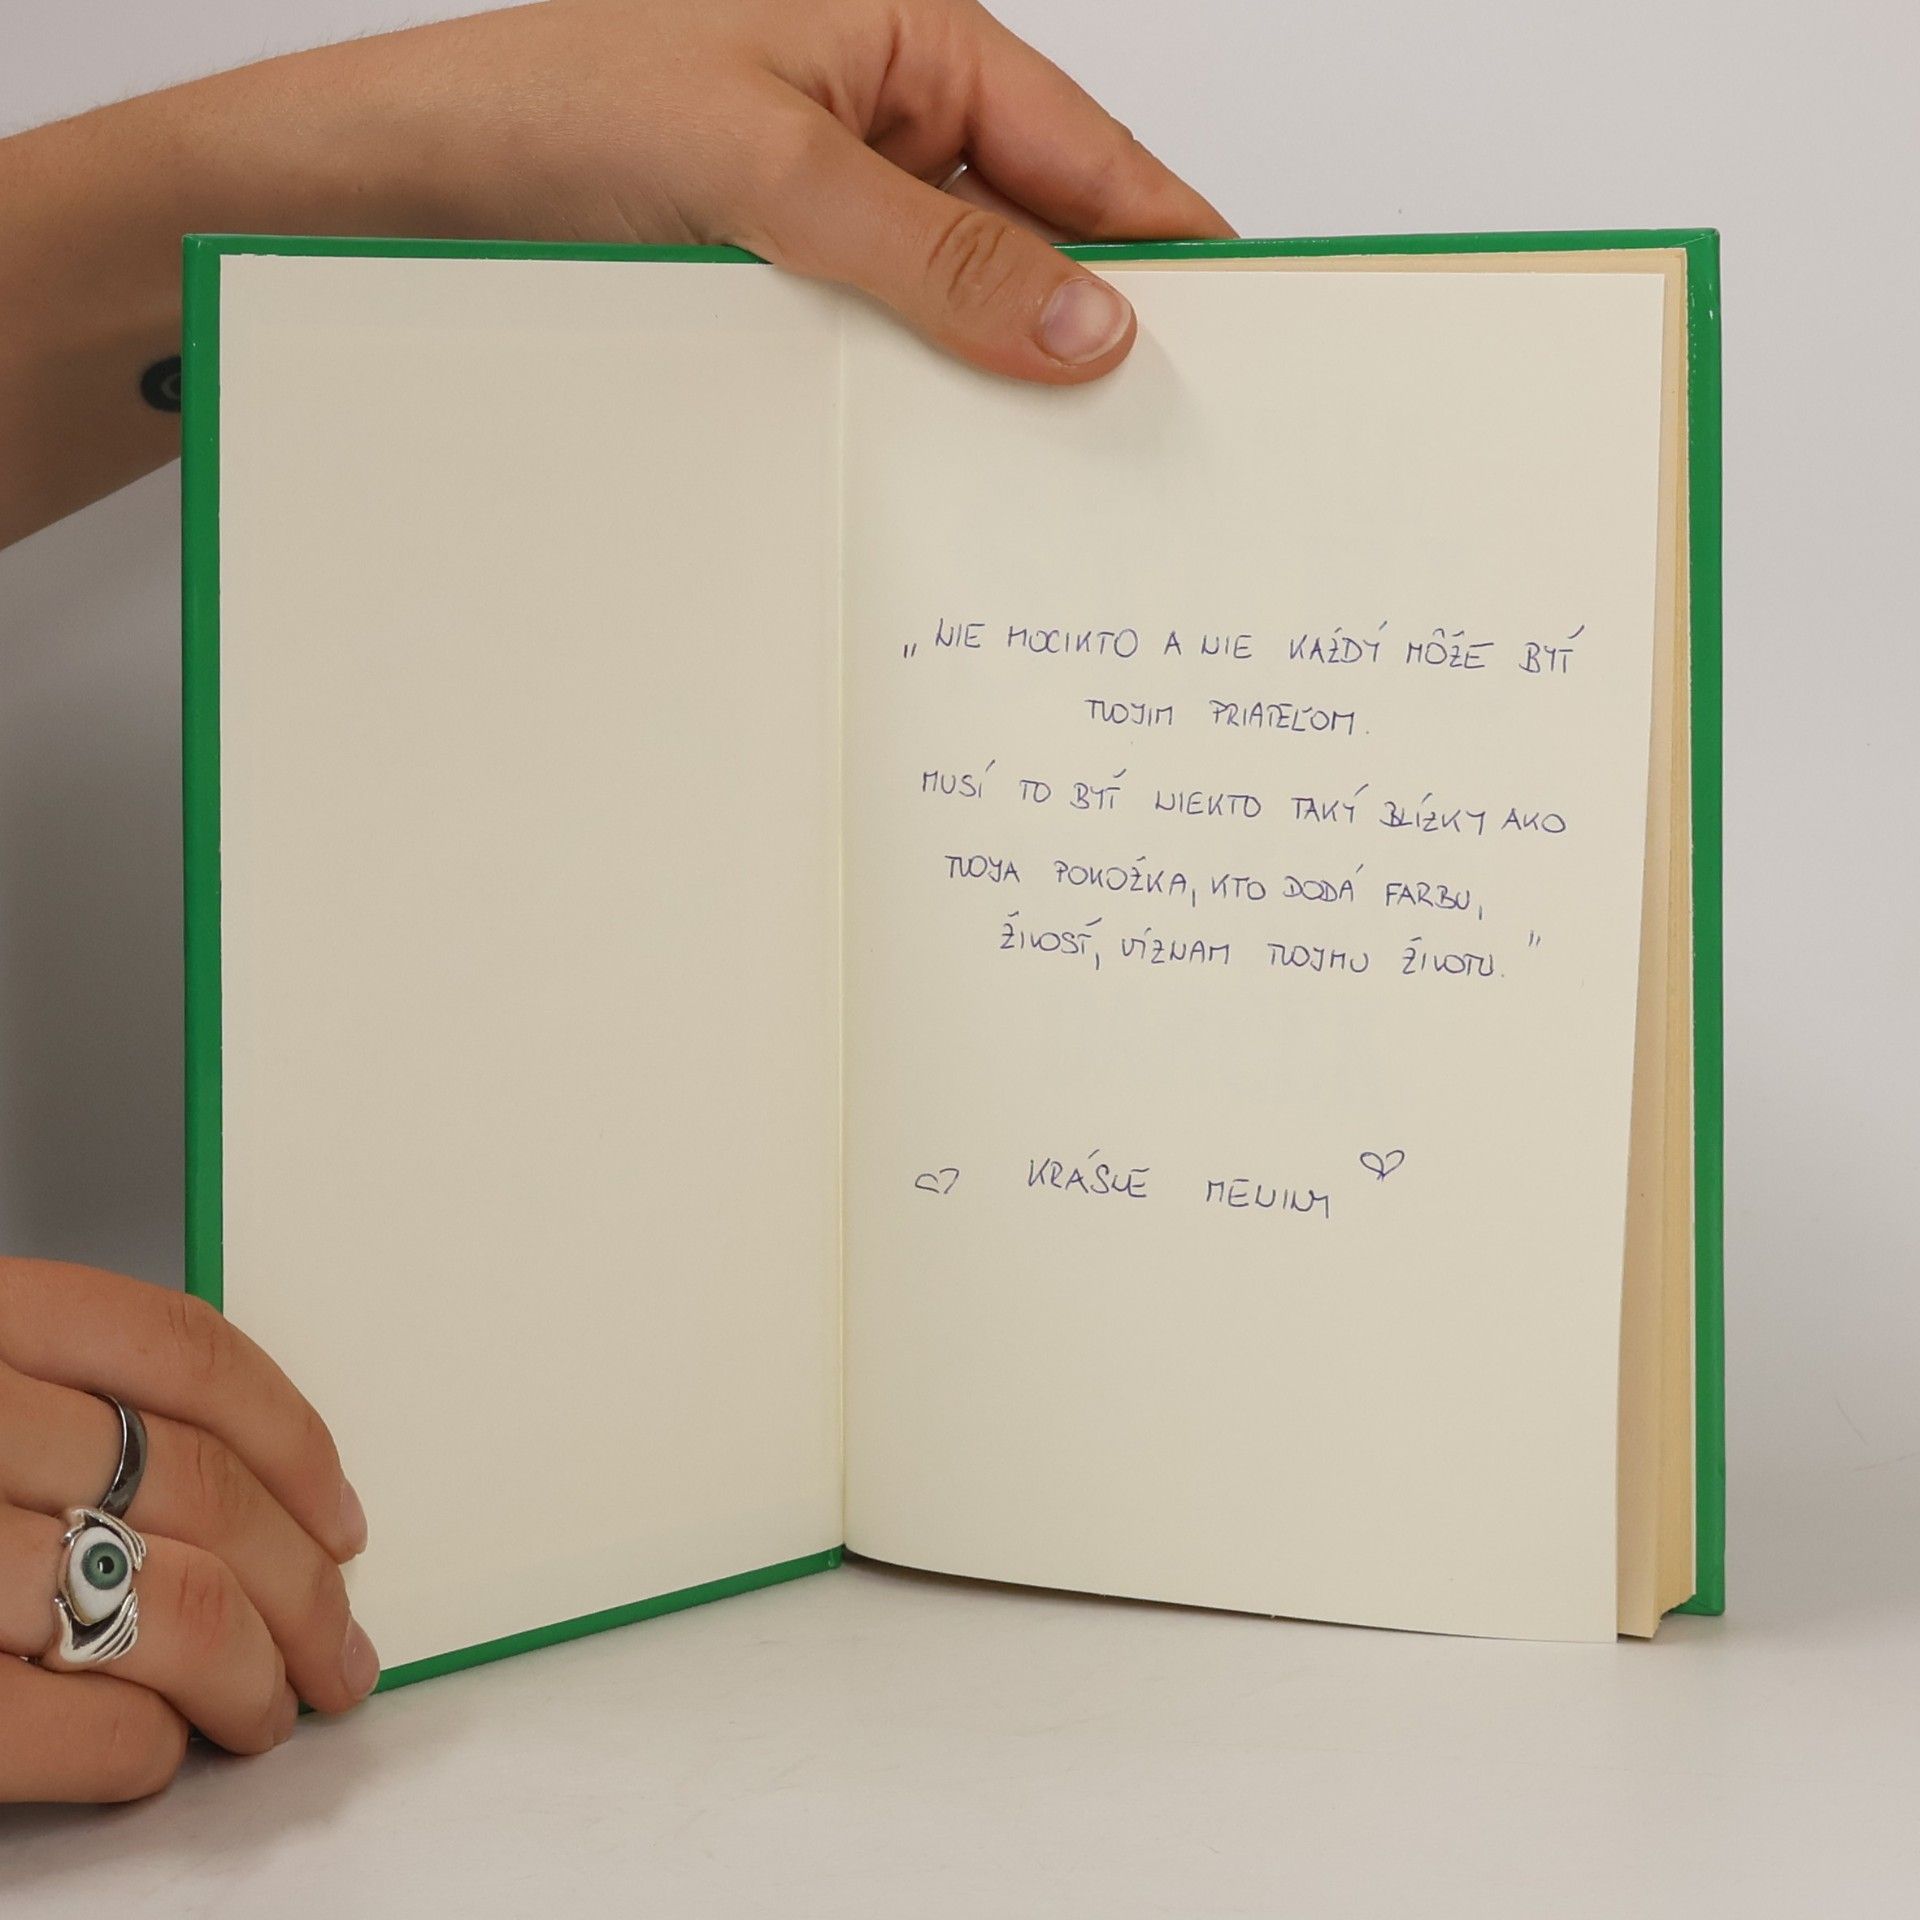 „NIE HOCIKTO A NIE KAŽDÝ MÔŽE BYŤ
TVOJIM PRIATEĽOM.
MUSÍ TO BYŤ NIEKTO TAKÝ BLÍZKY AKO
TVOJA POKOŽKA, KTO DODÁ FARBU,
ŽIVOSŤ, VÍZNAM TVOJMU ŽIVOTU."
KRÁSNE MENINY